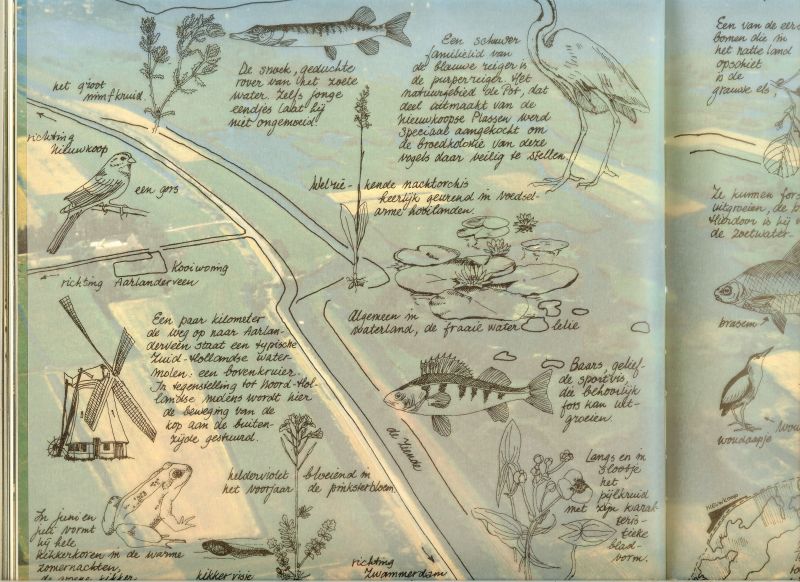 het groot
nimfkruid.
De snoek, geduchte
rover van het zoete
water. Zelfs jonge
eendjes laat hij
niet ongemoeid.
Een schuwer
familielid van
de blauwe reiger is
de purperreiger. Het
natuurgebied de Pot, dat
deel uitmaakt van de
Nieuwkoopse Plassen werd
speciaal aangekocht om
de broedkolonie van deze
vogels daar veilig te stellen
Een van de
bomen die in
het natte land
opschiet
is de
grauwe els,
richting
Nieuwkoop
een gors
Welrie-kende nachtorchis
heerlijk geurend in voedsel-
arme hooilanden.
Ze kunnen
uitgroeien, de
Hierdoor is hij
de zoetwater-
Kooiwoning
richting Aarlanderveen
Algemeen in
waterland, de fraaie water lelie
brasem
Een paar kilometer
de weg op naar Aarlan-
derveen staat een typische
Zuid-Hollandse water-
molen: een bovenkruier.
In tegenstelling tot Noord-Hol-
landse molens wordt hier
de beweging van de
kop aan de buiten-
zijde gestuurd.
Baars, gelief-
de sportvis,
die behoorlijk
fors kan uit-
groeien.
woudaapje
de Ziende
helderviolet bloeiend in
het voorjaar de pinksterbloem
Langs en in
slootje
het
pijlkruid
met zijn karak-
teris-
tieke
blad-
vorm.
Nieuwkoop
In juni en
juli vormt
hij hele
kikkerkoren in de warme
zomernachten,
de groene kikker
kikkervisje
richting
Zwammerdam